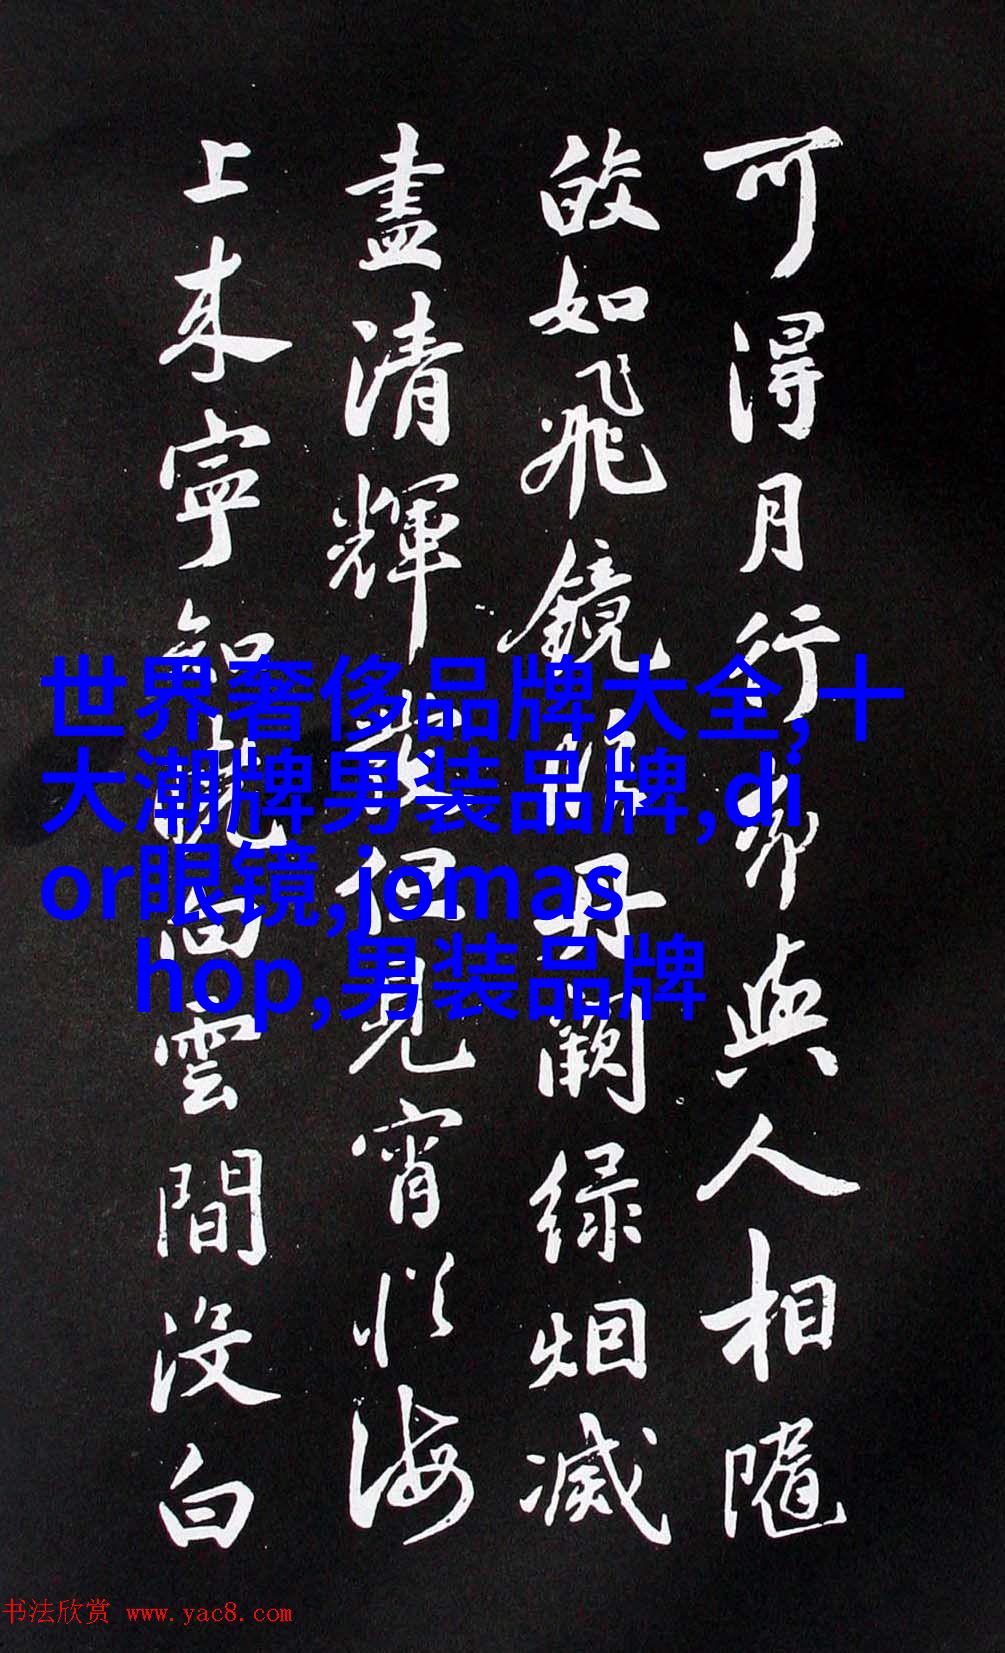 可得月行却與人相隨
皎如飛鏡臨丹闕緑烟滅
盡清輝發但見宵從海
上来寧知曉向雲間没白
世界奢侈品牌大全,十
大潮牌男装品牌,di
or眼镜,jomas
hop,男装品牌
书法欣赏 www.yac8.com